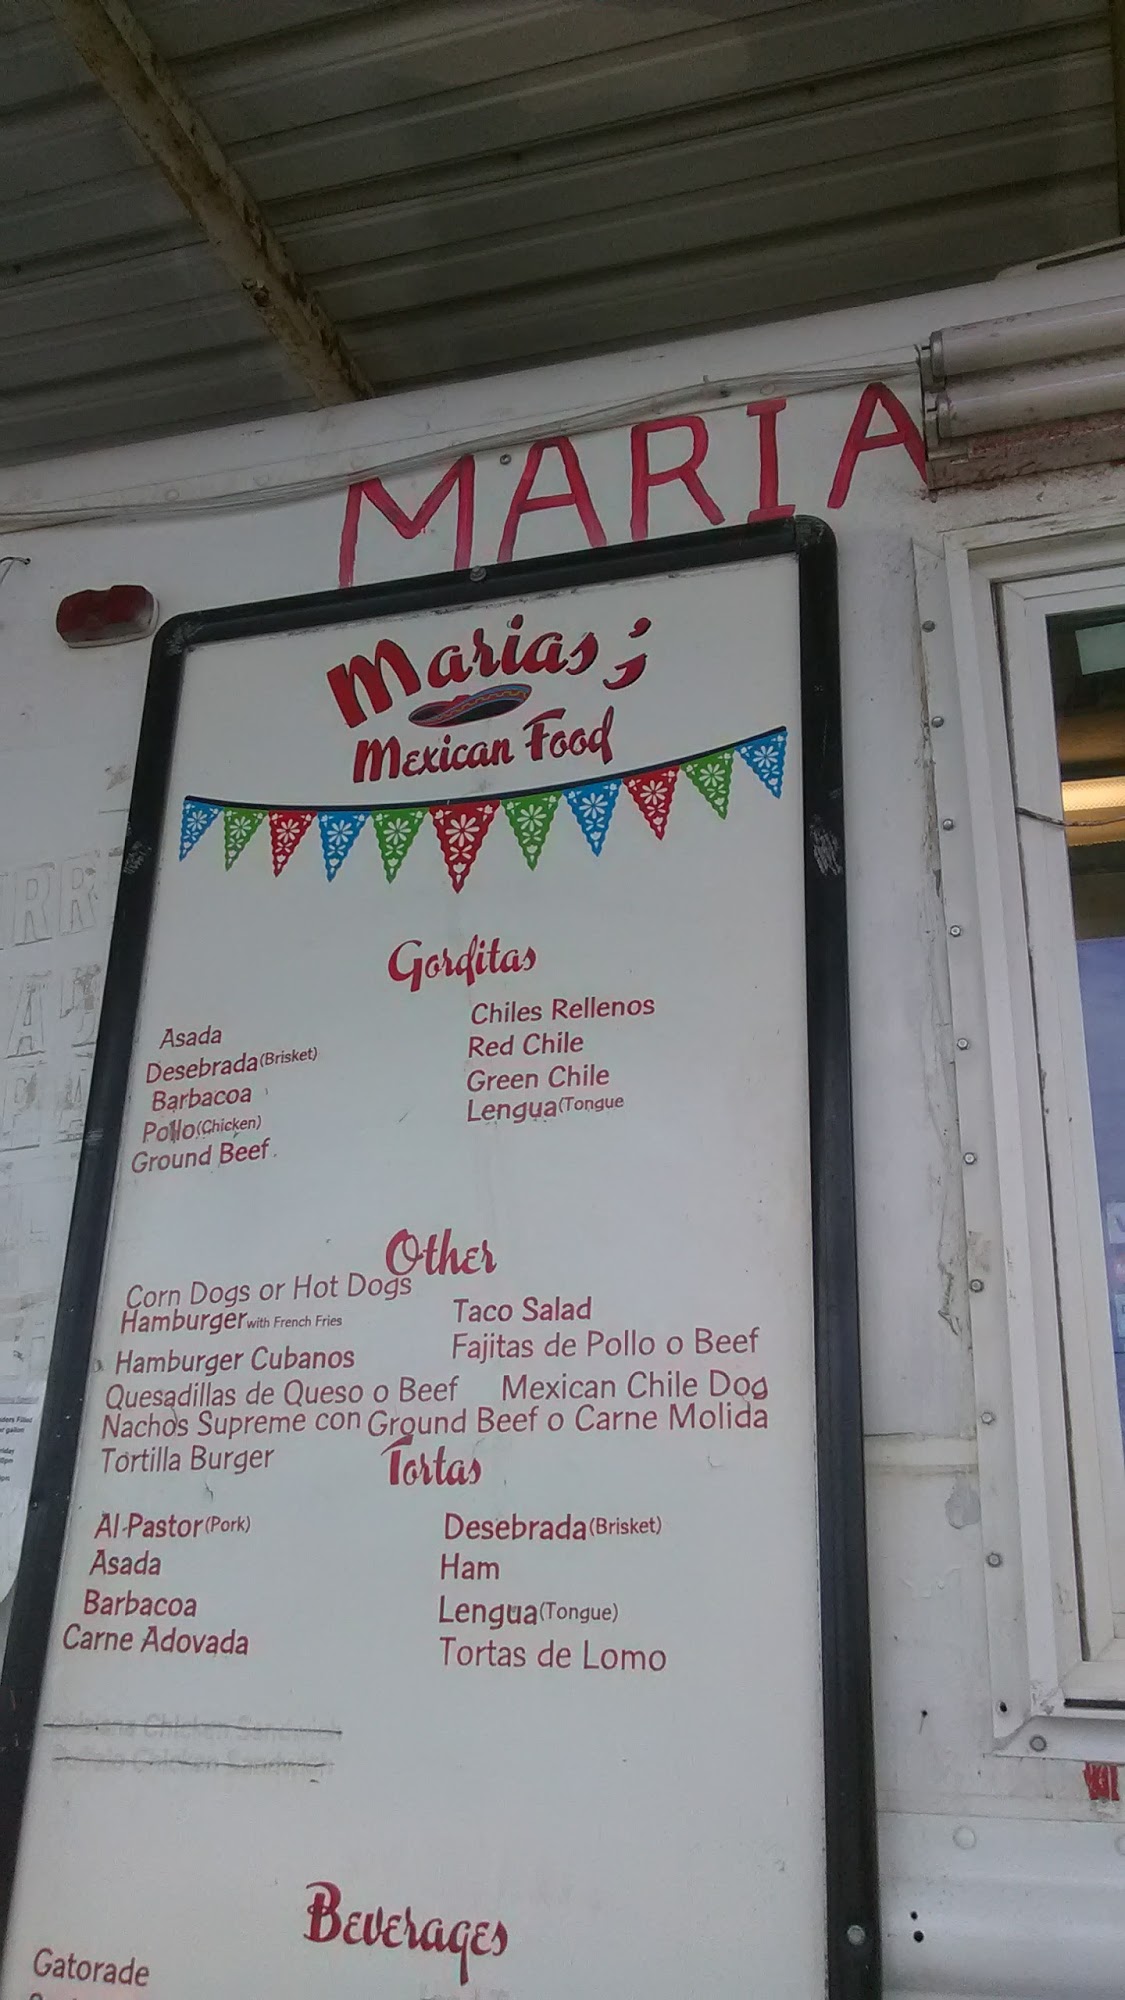 MARIA
Marias's
Mexican Food
Gorditas
Asada
Desebrada(Brisket)
Barbacoa
Pollo(Chicken)
Ground Beef
Chiles Rellenos
Red Chile
Green Chile
Lengua(Tongue
Other
Corn Dogs or Hot Dogs
Hamburger with French Fries
Taco Salad
Hamburger Cubanos
Fajitas de Pollo o Beef
Quesadillas de Queso o Beef
Mexican Chile Dog
Nachos Supreme con Ground Beef o Carne Molida
Tortilla Burger
Tortas
Al Pastor(Pork)
Asada
Barbacoa
Carne Adovada
Desebrada(Brisket)
Ham
Lengua(Tongue)
Tortas de Lomo
Chicken Sandwich
Chicken Sandwich
Beverages
Gatorade